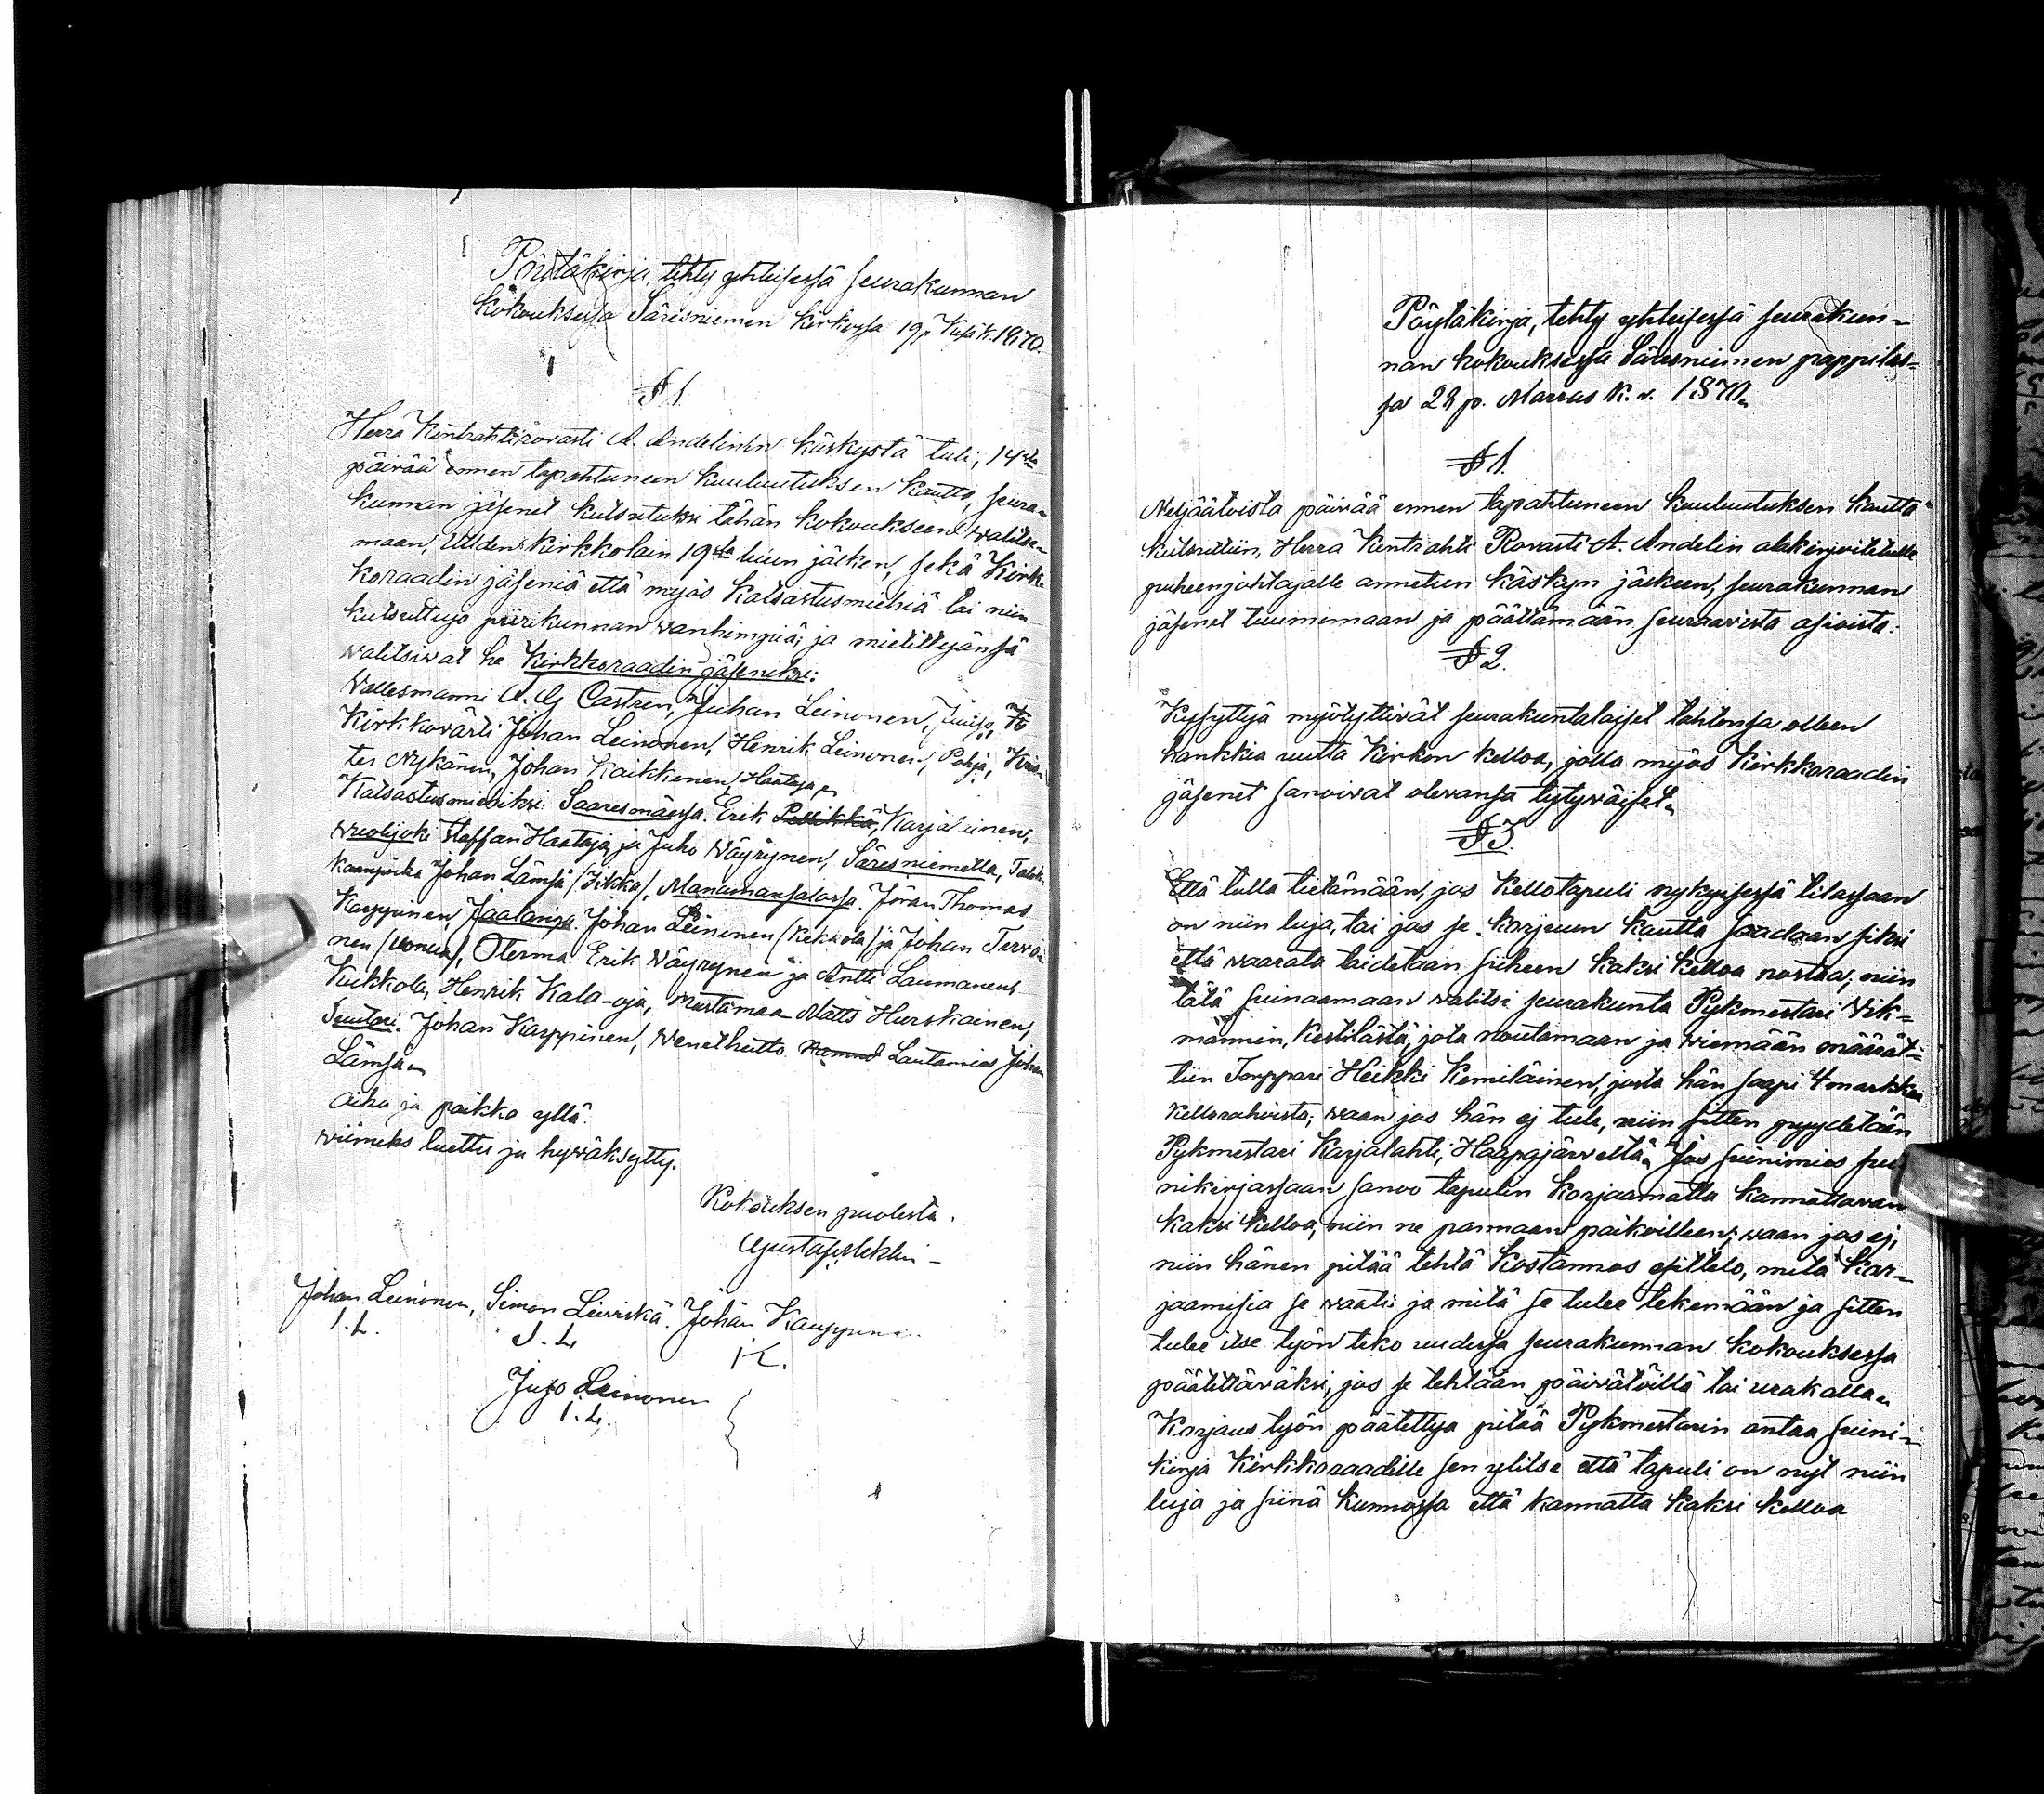 Pöytäkirja, tehty yhteisessä seurakunnan
kokouksessa Säresniemen kirkossa 19 p. Kesäk. 1870.
§ 1.
Herra Kontrahtirovasti A. Andelinin käskystä tuli, 14sta
päivää ennen tapahtuneen kuuluutuksen kautta, seura-
kunnan jäsenet kutsutuksi tähän kokoukseen walitse-
maan, Uuden kirkkolain 19sta luun jälkeen, sekä Kirk-
koraadin jäseniä että myös Katsastusmiehiä tai niin
kutsuttuja piirikunnan wanhimpia; ja mielittyänsä
walitsiwat he Kirkkoraadin jäseniksi:
Wallesmanni A. G Castren, Juhan Leinonen, Juuso,
Kirkkovärti Johan Leinonen, Henrik Leinonen, Pohja,
ter Nykänen, Johan Kaikkonen, Haataja
Katsastusmiehiksi Saaresmäessä. Erik Pellikka, Karjalainen,
Wuolijoki Staffan Haataja ja Juho Wäyrynen, Säresniemellä,
Johan Lämsä /Jikka/, Manamansalossa. Jöran Thomas
Karppinen, Jaalanga. Johan Leinonen /Kekkola/ ja Johan Terwo-
nen /Vonua/, Oterma. Erik Wäyrynen ja Antti Laumanen
Kuikkola, Henrik Kala-oja, Mustamaa Matts Hurskainen,
Suutari. Johan Karppinen, Wenetheitto Lautamies Johan
Lämsä
Aika ja paikka yllä.
wiimeks luettu ja hywäksytty.
Kokouksen puolesta.
Johan Leinonen, Simon Leiviskä. Johan Kauppinen
J. L. S. L K.
Juso Leinonen
J. L.
Pöytäkirja, tehty yhteisessä seurakun-
nan kokouksessa Säresniemen pappilas-
sa 28 p. Marras K. v. 1870
§ 1.
Neljäätoista päivää ennen tapahtuneen kuuluutuksen kautta
kutsuttiin, Herra Kontrahti Rovasti A. Andelin allekirjoitetulle
puheenjohtajalle annetun käskyn jälkeen, seurakunnan
jäsenet tuumimaan ja päättämään seuraavista asioista.
§ 2.
Kysyttyä myötyttivät seurakuntalaiset tahtonsa olleen
hankkia uutta Kirkon kelloa, jolla myös Kirkkoraadin
jäsenet sanoivat olevansa tytyväiset
§ 3.
Että tulla tietämään, jos kellotapuli nykyisessä tilassaan
on niin luja, tai jos se korjuun kautta saadaan siksi
että waarata taidetaan siiheen kaksi kelloa nostaa, niin
tätä siinaamaan walitsi seurakunta Pykmestari Wik-
männin, Kestilästä, jota noutamaan ja wiemään määrät-
tiin Torppari Heikki Kemiläinen, josta hän saapi 4 markkaa
kellorahoista; waan jos hän ej tule, niin sitten pyydetään
Pykmestari Karjalahti, Haapajärveltä. Jos siinimies sii-
nikirjassaan sanoo tapulin korjaamatta kannattavan
kaksi kelloa, niin ne pannaan paikoilleen; waan jos ej,
niin hänen pitää tehtä kostannos esittelo, mitä kor-
jaamisia se waatii ja mitä se tulee tekemään ja sitten
tulee itse työn teko uudessa seurakunnan kokouksessa
päätettäväksi, jos se tehtään päivätöillä tai urakalla
Korjaus työn päätettyä pitää Pykmestarin antaa siini-
kirja Kirkkoraadille sen ylitse että tapuli on nyt niin
luja ja siinä kunnossa että kannatta kaksi kelloa